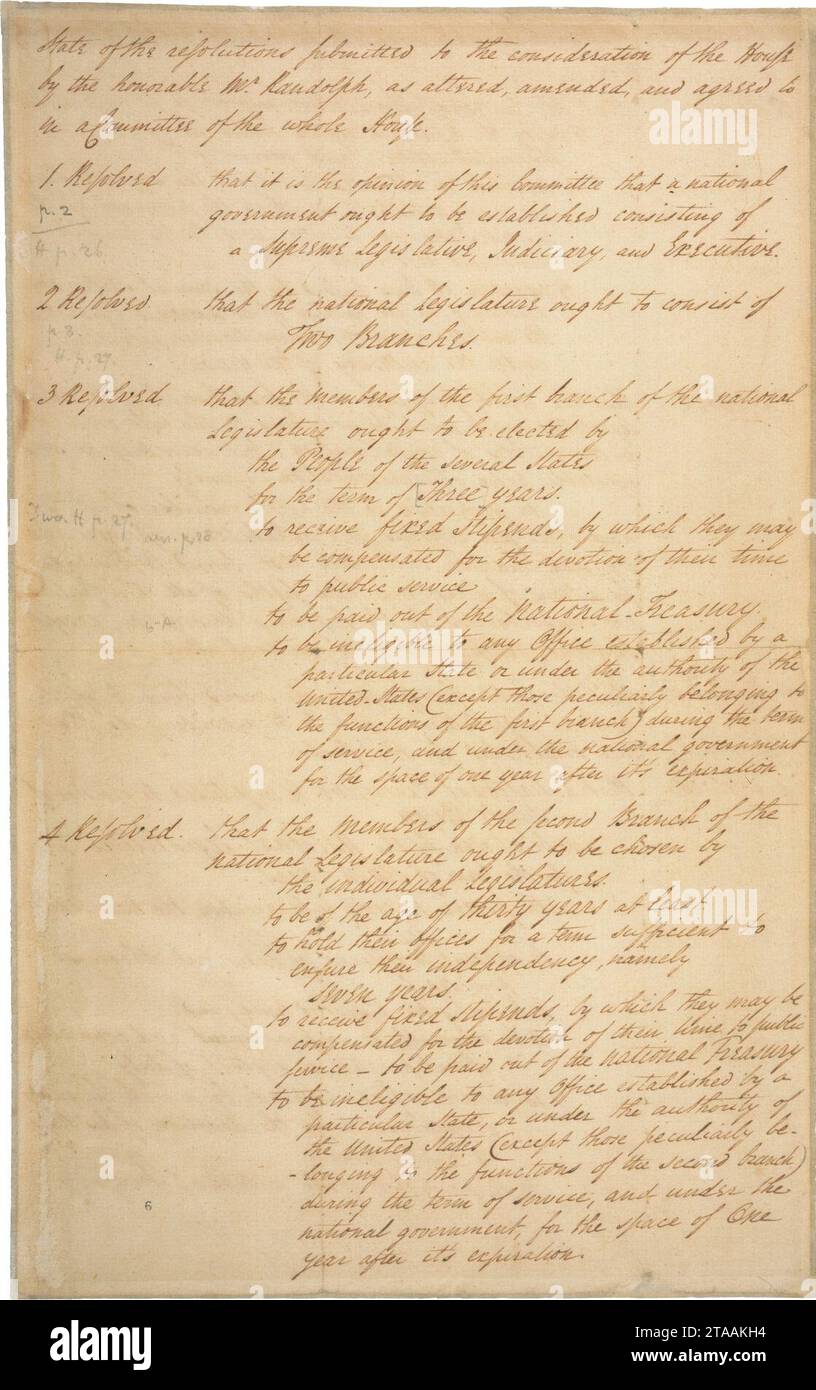 State of the resolutions submitted to the consideration of the House
by the honorable Mr. Randolph, as altered, amended, and agreed to
in a Committee of the whole House.
1. Resolved that it is the opinion of this Committee that a national
p. 2
government ought to be established consisting of
H p. 26
a Supreme Legislative, Judiciary, and Executive.
2 Resolved that the national Legislature ought to consist of
p. 3.
Two Branches.
H. p. 27.
3 Resolved that the Members of the first branch of the national
Legislature ought to be elected by
the People of the several States
for the term of Three years.
H p. 27.
to receive fixed Stipends, by which they may
be compensated for the devotion of their time
to public service
to be paid out of the National-Treasury.
to be ineligible to any Office established by a
particular State or under the authority of the
United-States (except those peculiarly belonging to
the functions of the first branch) during the term
of service, and under the national government
for the space of one year after it's expiration.
4 Resolved. that the Members of the second Branch of the
national Legislature ought to be chosen by
the individual Legislatures.
to be of the age of thirty years at least
to hold their offices for a term sufficient to
ensure their independency, namely
seven years.
to receive fixed Stipends, by which they may be
compensated for the devotion of their time to public
service - to be paid out of the National Treasury
to be ineligible to any Office established by a
particular State, or under the authority of
the United States (except those peculiarly be-
-longing to the functions of the second branch)
during the term of service, and under the
national government, for the space of One
year after it's expiration.
6
alamy
alamy
Image ID: 2TAAKH4
www.alamy.com